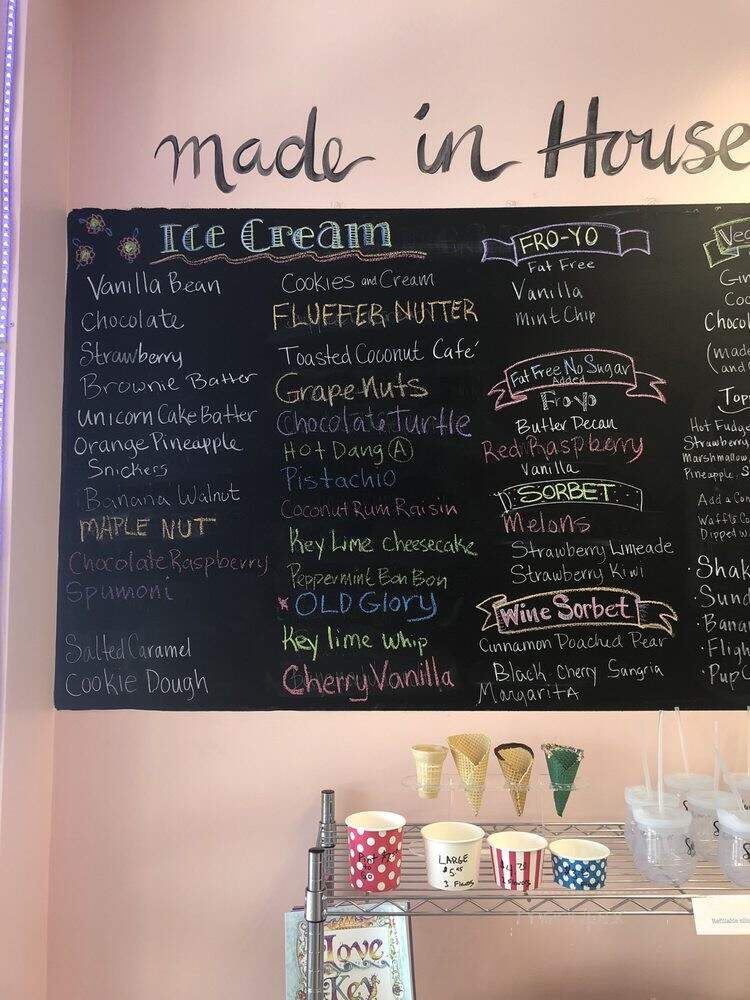 made in House
Ice Cream
Vanilla Bean
Chocolate
Strawberry
Brownie Batter
Unicorn Cake Batter
Orange Pineapple
Snickers
Banana Walnut
MAPLE NUT
Chocolate Raspberry
Spumoni
Salted Caramel
Cookie Dough
Cookies and Cream
FLUFFER NUTTER
Toasted Coconut Café
GrapeNuts
Chocolate Turtle
Hot Dang A
Pistachio
Coconut Rum Raisin
Key Lime Cheesecake
Peppermint Bon Bon
OLD Glory
Key lime whip
Cherry Vanilla
FRO-YO
Fat Free
Vanilla
Mint Chip
Fat Free No Sugar
Added
FroYo
Butter Pecan
Red Raspberry
Vanilla
SORBET
Melons
Strawberry Limeade
Strawberry Kiwi
Wine Sorbet
Cinnamon Poached Pear
Black Cherry Sangria
MargaritA
Veg
Gin
Coc
Chocol
(made
and
Topp
Hot Fudge
Strawberry
Marshmallow,
Pineapple, S
Add a Con
Waffle C
Dipped W
• Shak
• Sund
• Banan
• Fligh
• PupC
LARGE
3 Flavors
Love
Key